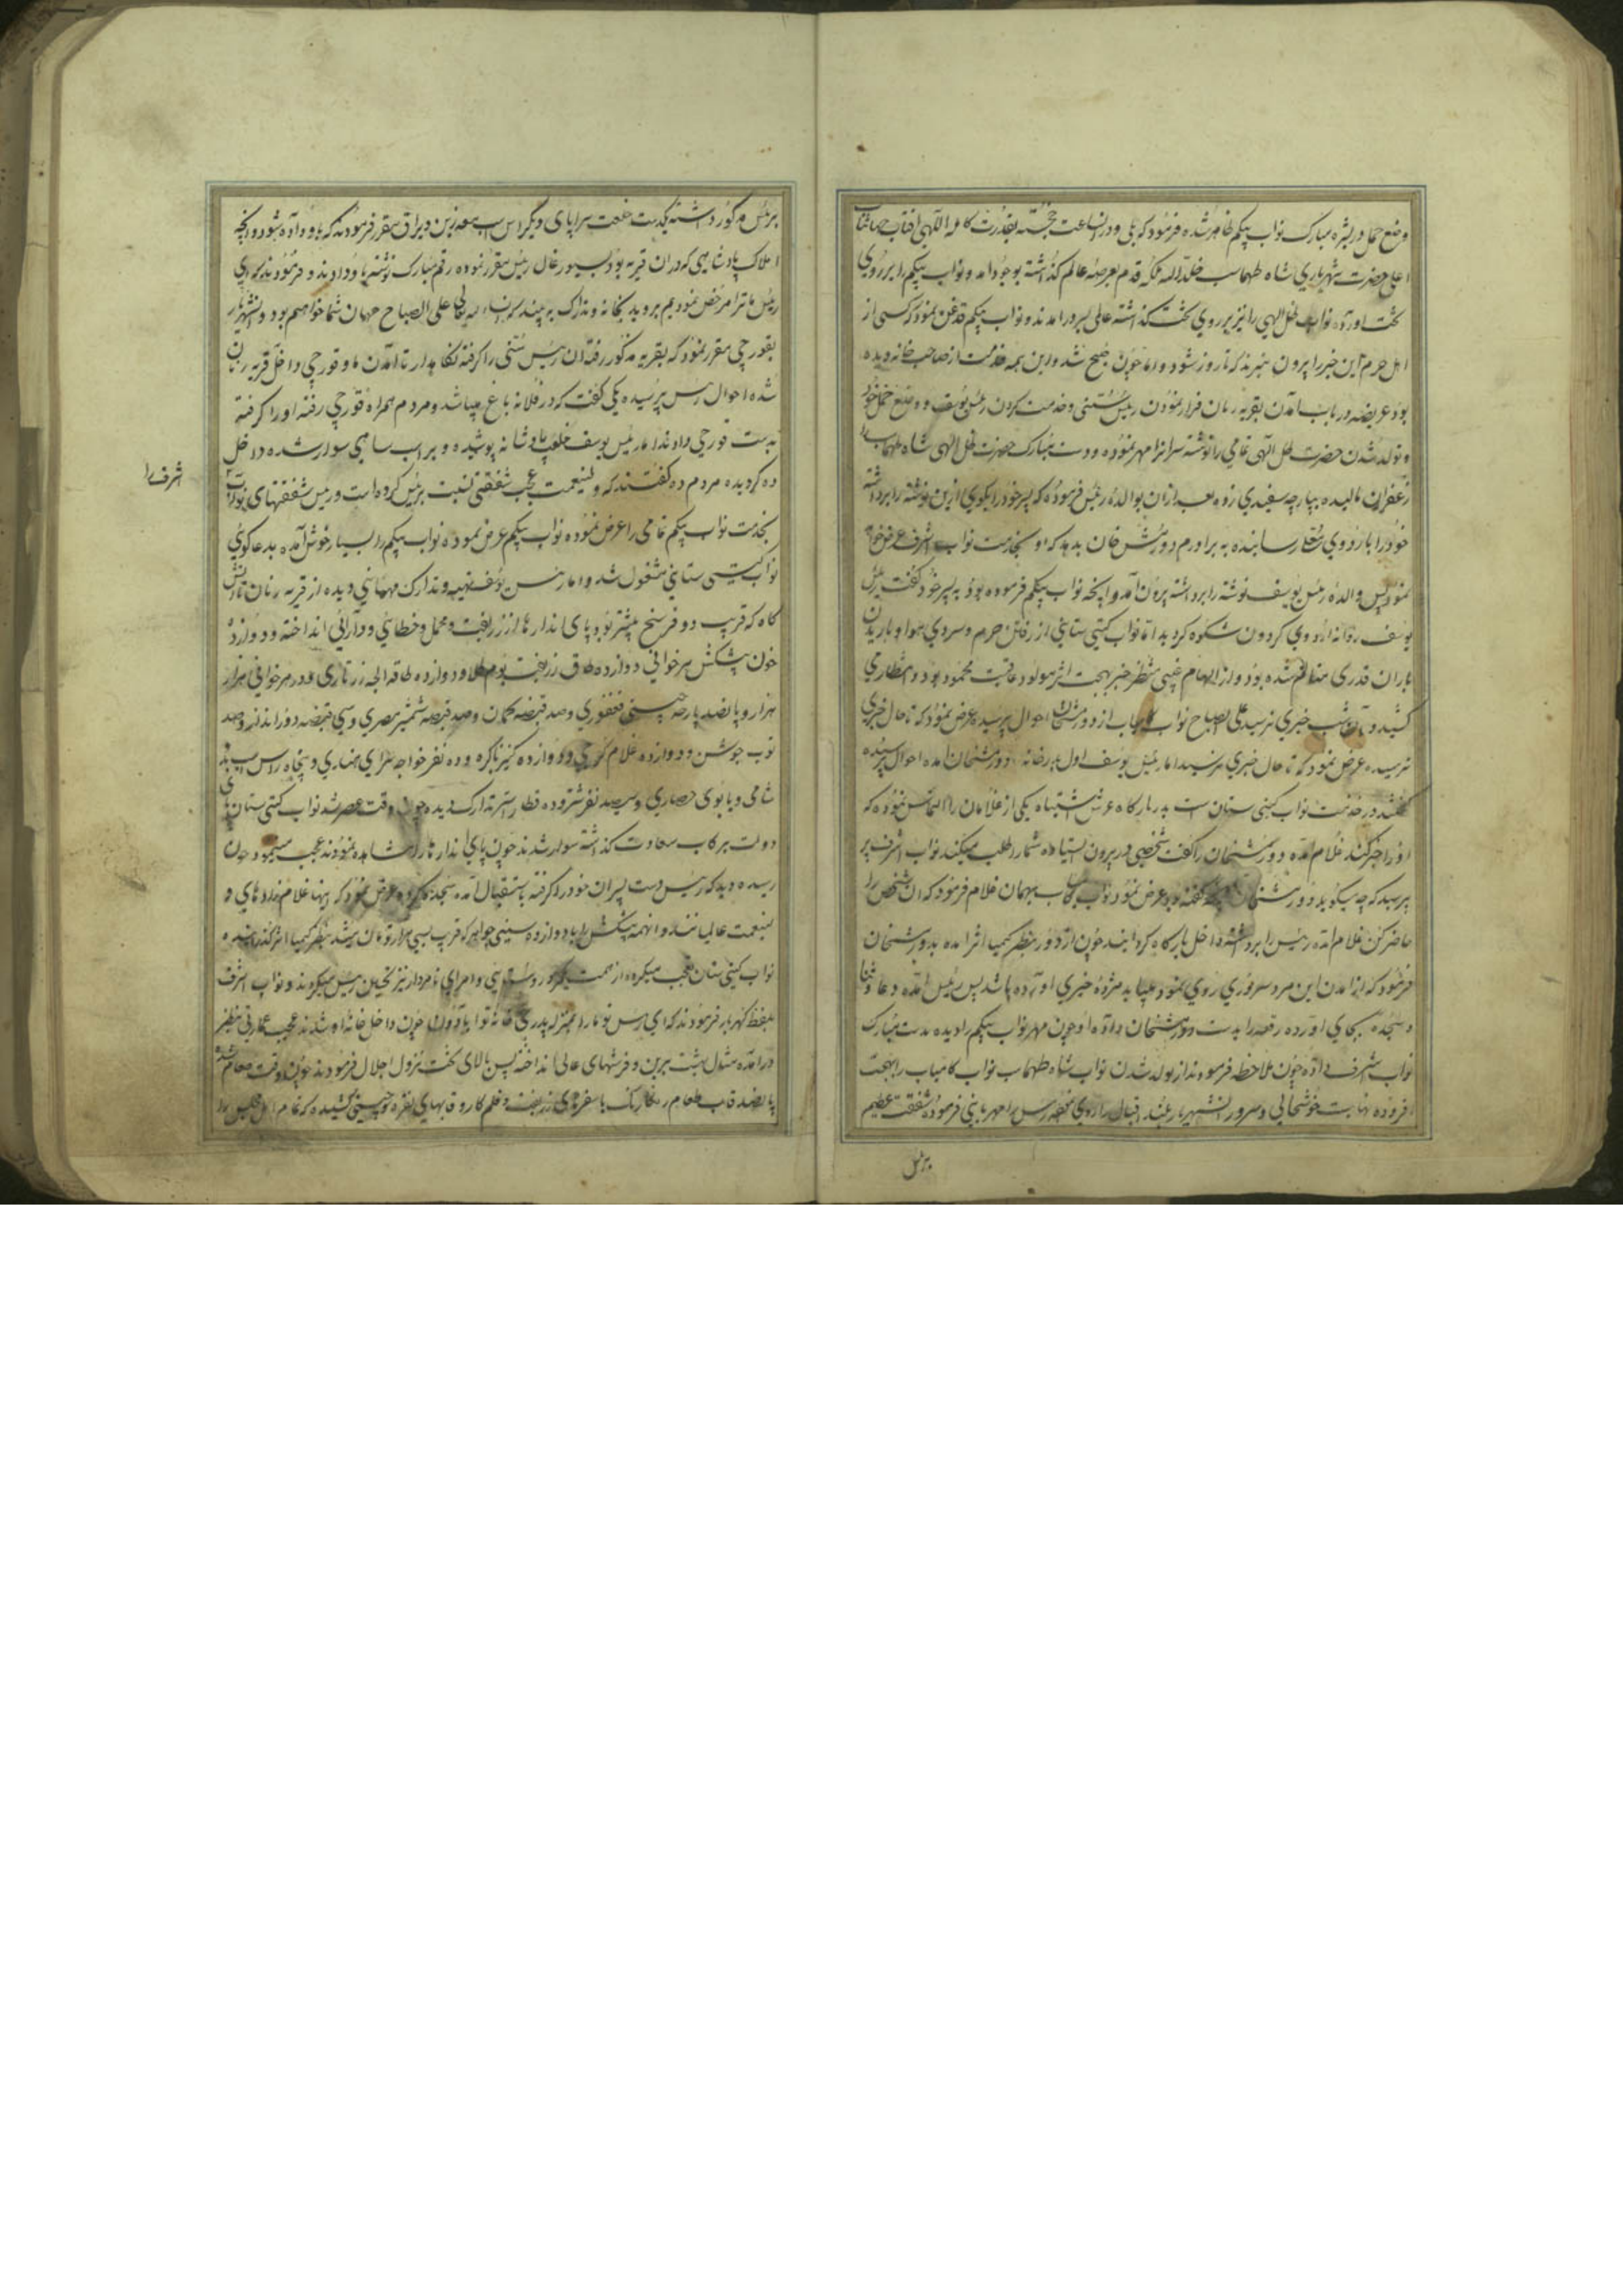 وضع حمل در بشره مبارک نواب بیکم ظاهر شده فرمود که بلی و در انساعت خجسته بقدرت کامله الهی افتاب جهانتاب
اعلیحضرت شهریاری شاه طهماسب خلد الله ملکه قدم بعرصه عالم کذاشته بوجود امد و نواب بیکم را بر روی
تخت اورده نواب ظل الهی را نیز بر روی تخت کذاشته عالی بسرور امدند و نواب بیکم قدغن نمود که کسی از
اهل حرم این خبر را بیرون نبرند که تا روز شود و اما چون صبح شد و این همه خدمت از صاحب خانه دیده
بود عریضه در باب امدن بقریه رنان فرار نمودن رئیس سنی و خدمت کردن رئیس یوسف و وضع حمل خود
و تولد شدن حضرت ظل الهی تمامی را نوشته سرانرا مهر نموده و دست مبارک حضرت ظل الهی شاه طهماسب را
زعفران مالیده بپارچه سفیدی زده بعد ازان بوالده رئیس فرموده که پسر خود را بکوی این نوشته را برداشته
خود را باردوی معلی رسانیده به برادرم دورمش خان بدهد که او بخدمت نواب اشرف عرض خواهد
نمود پس والده رئیس یوسف نوشته را برداشته بیرون آمد و انچه نواب بیکم فرموده بود به پسر خود کفت رئیس
یوسف روانه اردوی کردون شکوه کردید اما نواب کیتی ستانی از رفتن حرم و سردی هوا و باریدن
باران قدری متالم شده بود و از الهام غیبی منتظر خبر بهجت اثر مولود عاقبت محمود بود و انتظار می
کشید و آن شب خبری نرسید علی الصباح نواب کامیاب از دورمشخان احوال پرسید عرض نمود که تا حال خبری
نرسیده عرض نمود که تا حال خبری نرسید اما رئیس یوسف اول بدرخانه دورمشخان امده احوال پرسیده
کفتند در خدمت نواب کیتی ستان است بدر بارکاه عرش اشتباه یکی از غلامان را التماس نموده که
اورا خبر کند غلام آمده دورمشخان را کفت شخصی در بیرون استاده شمارا طلب میکند نواب اشرف پر
پرسید که چه میکوید دورمشخان انچه کفته بود عرض نمود نواب کامیاب بهمان غلام فرمود که ان شخص را
حاضر کن غلام آمده رئیس را برداشته داخل بارکاه کردانید چون از دور بنظر کیمیا اثر امده بدورمشخان
فرمود که از امدن این مرد سروری روی نمود میباید مژده خبری اورده باشد پس رئیس آمده دعا و ثنا
و سجده بجای اورده رقعه را بدست دورمشخان داده او چون مهر نواب بیکم را دیده بدست مبارک
نواب اشرف داده چون ملاحظه فرمودند از تولد شدن نواب شاه طهماسب نواب کامیاب را بهجت
افزوده نهایت خوشحالی و سرور انشهریار بلند اقبال را روی نموده رئیس را مهربانی فرموده شفقت عظیم
برئیس
برئیس مذکور داشته یکدست خلعت سراپای و یکراس اسب معه زین و یراق مقرر فرمودند که باو داده شود و انچه
املاک پادشاهی که در ان قریه بود بسیورغال رئیس مقرر نموده رقم مبارک نوشته باو دادند و فرمودند که ای
رئیس ما ترا مرخص نمودیم بروید بخانه و تدارک به بیند که انشاء الله تعالی علی الصباح مهمان شما خواهیم بود و انشهریار
بقورچی مقرر نمود که بقریه مذکور رفته ان رئیس سنی را کرفته نکاه بدار تا آمدن ما و قورچی داخل قریه رنان
شده احوال رئیس پرسیده یکی کفت که در فلانه باغ میباشد و مردم همراه قورچی رفته او را کرفته
بدست قورچی دادند اما رئیس یوسف خلعت پادشانه پوشیده و بر اسب شاهی سوار شده داخل
ده کردیده مردم ده کفتند که ولینعمت عجب شفقتی نسبت برئیس کرده است و رئیس شفقتهای نواب
اشرف را
بخدمت نواب بیکم تمامی را عرض نموده نواب بیکم عرض نموده نواب بیکم را بسیار خوش آمده بدعا کوی
نواب کیتی ستانی مشغول شد و اما رئیس یوسف تهیه و تدارک مهمانی دیده از قریه رنان تا
کاه که قریب دو فرسخ بیشتر بود پای اندازها از زربفت و مخمل و خطائی و دارائی انداخته و دوازده
خون پیشکش هر خوانی دوازده طاق زربفت بوم طلا و دوازده طاقه الجه زرتاری و در هر خوانی هزار
هزار و پانصد پارچه چینی فغفوری و صد قبضه کمان و صد قبضه شمشیر مصری و سی قبضه دور انداز و صد
ثوب جوشن و دوازده غلام کرجی و دوازده کنیز باکره و ده نفر خواجه سرای هندی و پنجاه راس اسب بدوی
شامی و یابوی حصاری و سیصد نفر شتر و ده قطار استر تدارک دیده چون وقت عصر شد نواب کیتی ستان پای
دولت برکاب سعادت کذاشته سوار شدند چون پای اندازها را مشاهده نمودند عجب مینمود چون
رسیده دید که رئیس دست پسران خود را کرفته باستقبال آمده سجده کرده عرض نمود که اینها غلام زادهای و
لینعمت عالمیانند و انهمه پیشکش را با دوازده سینی جواهر که قریب بسی هزار تومان میشد بنظر کیمیا اثر کذرانیده
نواب کیتی ستان تعجب میکرده از همت یکمرد روستایی و امرای نامدار نیز تحسین رئیس میکردند و نواب اشرف
بلفظ کهربار فرمودند که ای رئیس تو ما را بمنزله پدری خانه تو اباد چون داخل خانه او شدند عجب عمارتی بنظر
درامده مثل بهشت برین و فرشهای عالی انداخته پس بالای تخت نزول اجلال فرمودند چون وقت طعام شد
پانصد قاب طعام رنکارنک با سفرهای زربفت و قلمکار و قابهای نقره و چینی کشیده که تمام اهل مجلس را